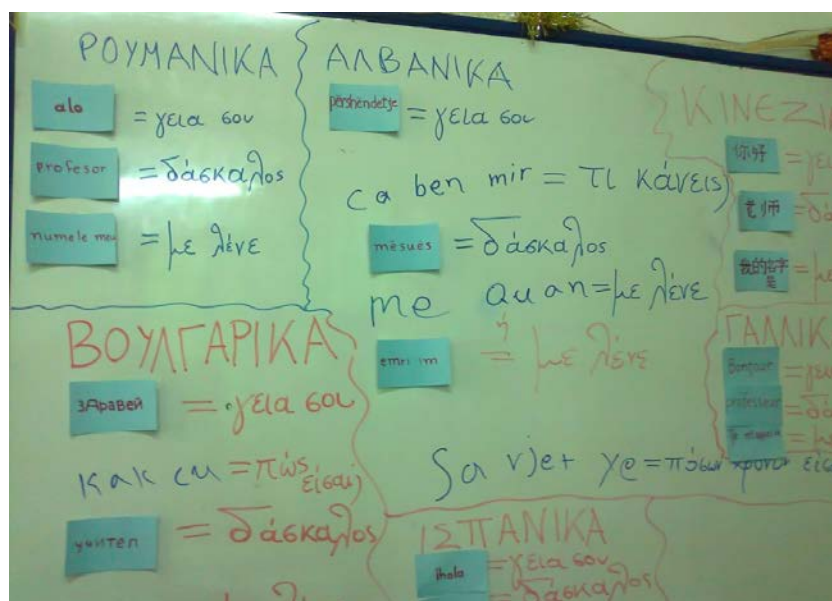 ΡΟΥΜΑΝΙΚΑ
alo = γεια σου
profesor = δάσκαλος
numele meu = με λένε
ΑΛΒΑΝΙΚΑ
përshëndetje = γεια σου
ca ben mir = τι κάνεις;
mësues = δάσκαλος
me quan = με λένε
ή
emri im = με λένε
Sa vjet ye = πόσων χρονών είσ
ΚΙΝΕΖΙ
你好 = γε
老师 = δά
我的名字
是 = μ
ΓΑΛΛΙΚ
Bonjour = γε
professeur = δά
= μ
ΒΟΥΛΓΑΡΙΚΑ
здравей = γεια σου
как си = πώς
είσαι;
учител = δάσκαλος
ΙΣΠΑΝΙΚΑ
ihola = γεια σου
= δάσκαλος